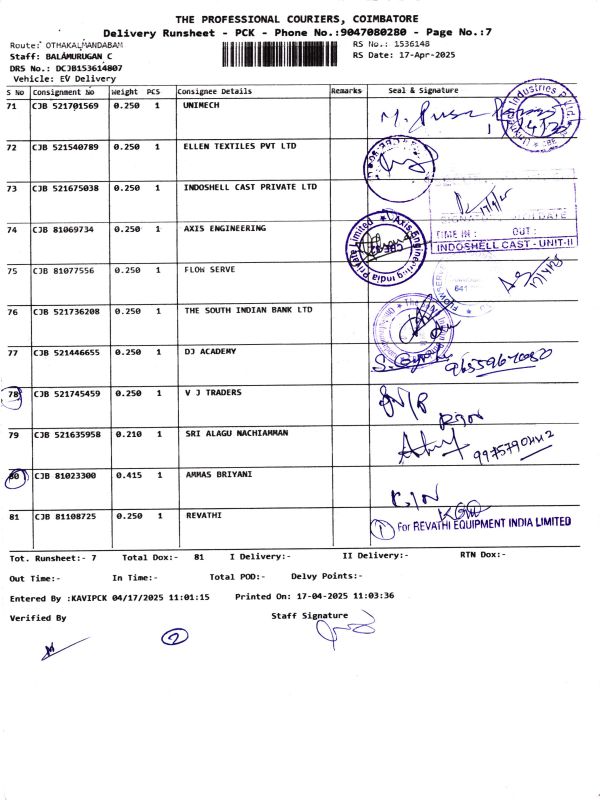 THE PROFESSIONAL COURIERS, COIMBATORE
Delivery Runsheet - PCK - Phone No.:9047080280 - Page No.:7
Route: OTHAKALMANDABAM RS No.: 1536148
Staff: BALAMURUGAN C RS Date: 17-Apr-2025
DRS No.: DCJB153614807
Vehicle: EV Delivery
S No Consignment No Weight PCS Consignee Details Remarks Seal & Signature
71 CJB 521701569 0.250 1 UNIMECH
72 CJB 521540789 0.250 1 ELLEN TEXTILES PVT LTD
73 CJB 521675038 0.250 1 INDOSHELL CAST PRIVATE LTD
17/4/25
DATE
TIME IN : OUT :
INDOSHELL CAST - UNIT-II
74 CJB 81069734 0.250 1 AXIS ENGINEERING
Axis Engineering India Private Limited
75 CJB 81077556 0.250 1 FLOW SERVE
17/4/25
76 CJB 521736208 0.250 1 THE SOUTH INDIAN BANK LTD
77 CJB 521446655 0.250 1 DJ ACADEMY
78 CJB 521745459 0.250 1 V J TRADERS
79 CJB 521635958 0.210 1 SRI ALAGU NACHIAMMAN
80 CJB 81023300 0.415 1 AMMAS BRIYANI
81 CJB 81108725 0.250 1 REVATHI
1 For REVATHI EQUIPMENT INDIA LIMITED
Tot. Runsheet:- 7 Total Dox:- 81 I Delivery:- II Delivery:- RTN Dox:-
Out Time:- In Time:- Total POD:- Delvy Points:-
Entered By :KAVIPCK 04/17/2025 11:01:15 Printed On: 17-04-2025 11:03:36
Verified By Staff Signature
2